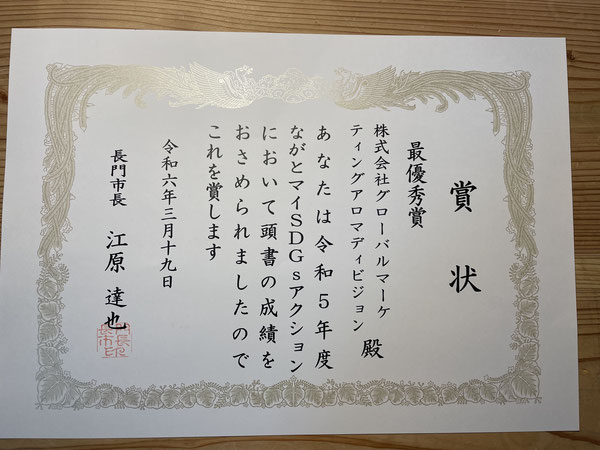 賞状
最優秀賞
株式会社グローバルマーケ
ティングアロマディビジョン 殿
あなたは令和5年度
ながとマイSDGsアクション
において頭書の成績を
おさめられましたので
これを賞します
令和六年三月十九日
長門市長 江原達也
長門市長印